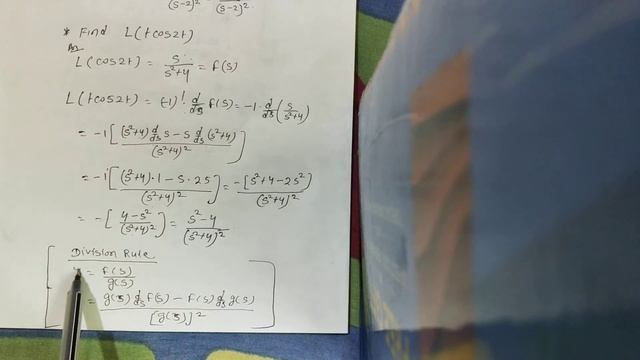 (s-2)² (s-2)².
* Find L(tcos2t)
Ans
L(cos2t) = s/(s²+4) = f(s)
L(tcos2t) = (-1)¹. d/ds f(s) = -1. d/ds (s/(s²+4))
= -1[((s²+4) d/ds s - s d/ds (s²+4))/(s²+4)²]
= -1[((s²+4)·1 - s·2s)/(s²+4)²] = -[s²+4-2s²]/(s²+4)²
= -[(4-s²)/(s²+4)²] = (s²-4)/(s²+4)²
Division Rule
= f(s)/g(s)
= (g(s) d/ds f(s) - f(s) d/ds g(s))/[g(s)]²